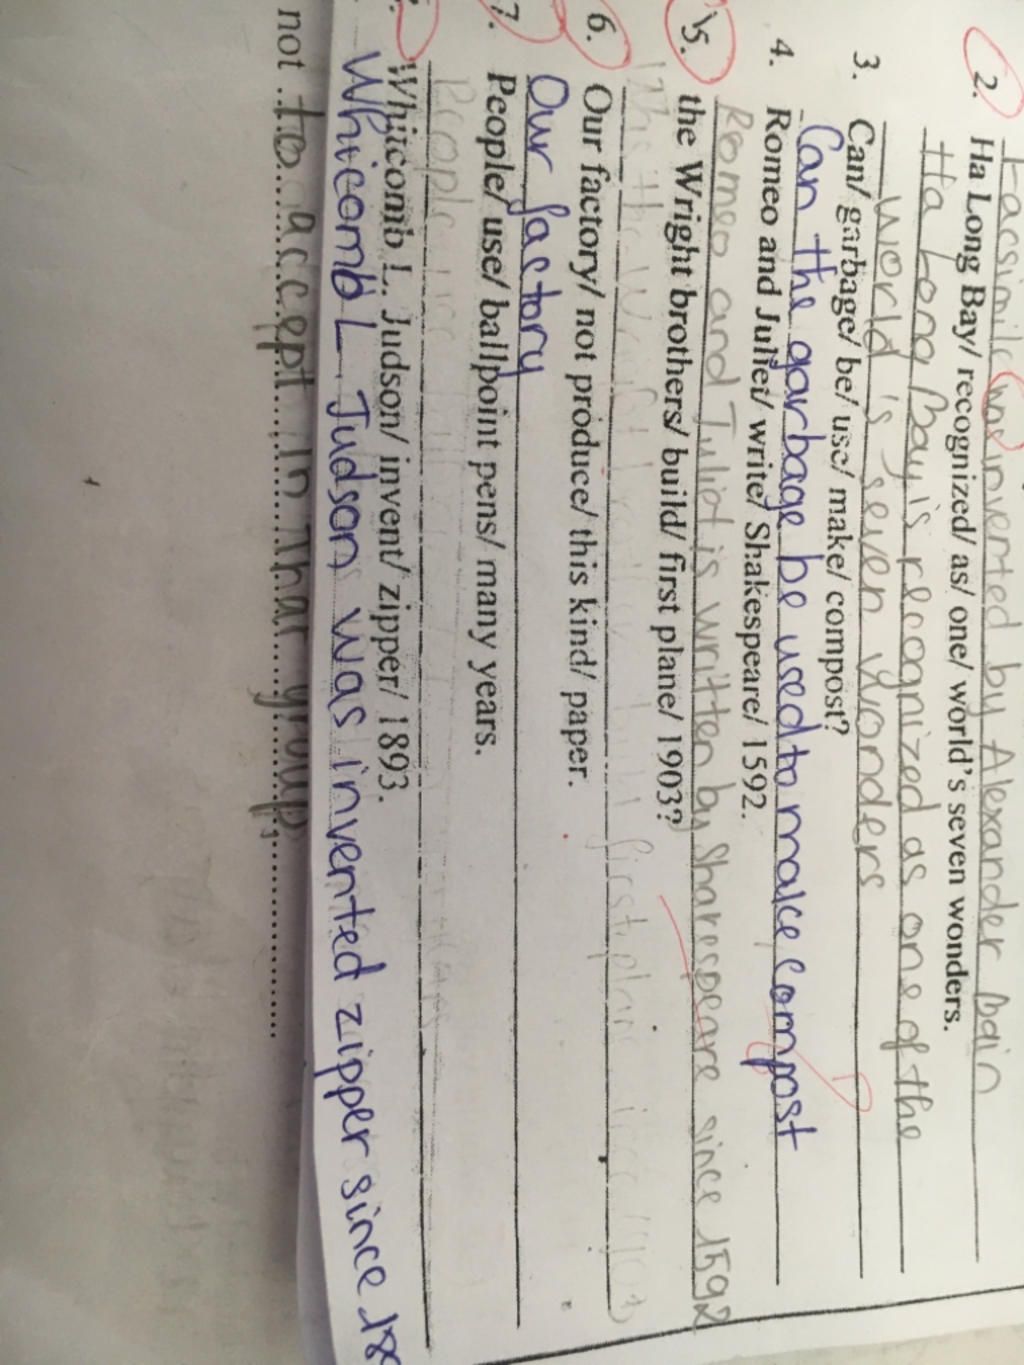 Facsimile was invented by Alexander Bain
2. Ha Long Bay/ recognized/ as/ one/ world's seven wonders.
Ha Long Bay is recognized as one of the
world is seven wonders
3. Can/ garbage/ be/ use/ make/ compost?
Can the garbage be used to make compost
4. Romeo and Juliet/ write/ Shakespeare/ 1592.
Romeo and Juliot is written by Sharespeare since 1592
5. the Wright brothers/ build/ first plane/ 1903?
first plane
6. Our factory/ not produce/ this kind/ paper.
Our factory
7. People/ use/ ballpoint pens/ many years.
People
Whitcomb L. Judson/ invent/ zipper/ 1893.
Whicomb L. Judson was invented zipper since 18
not to accept in that group.